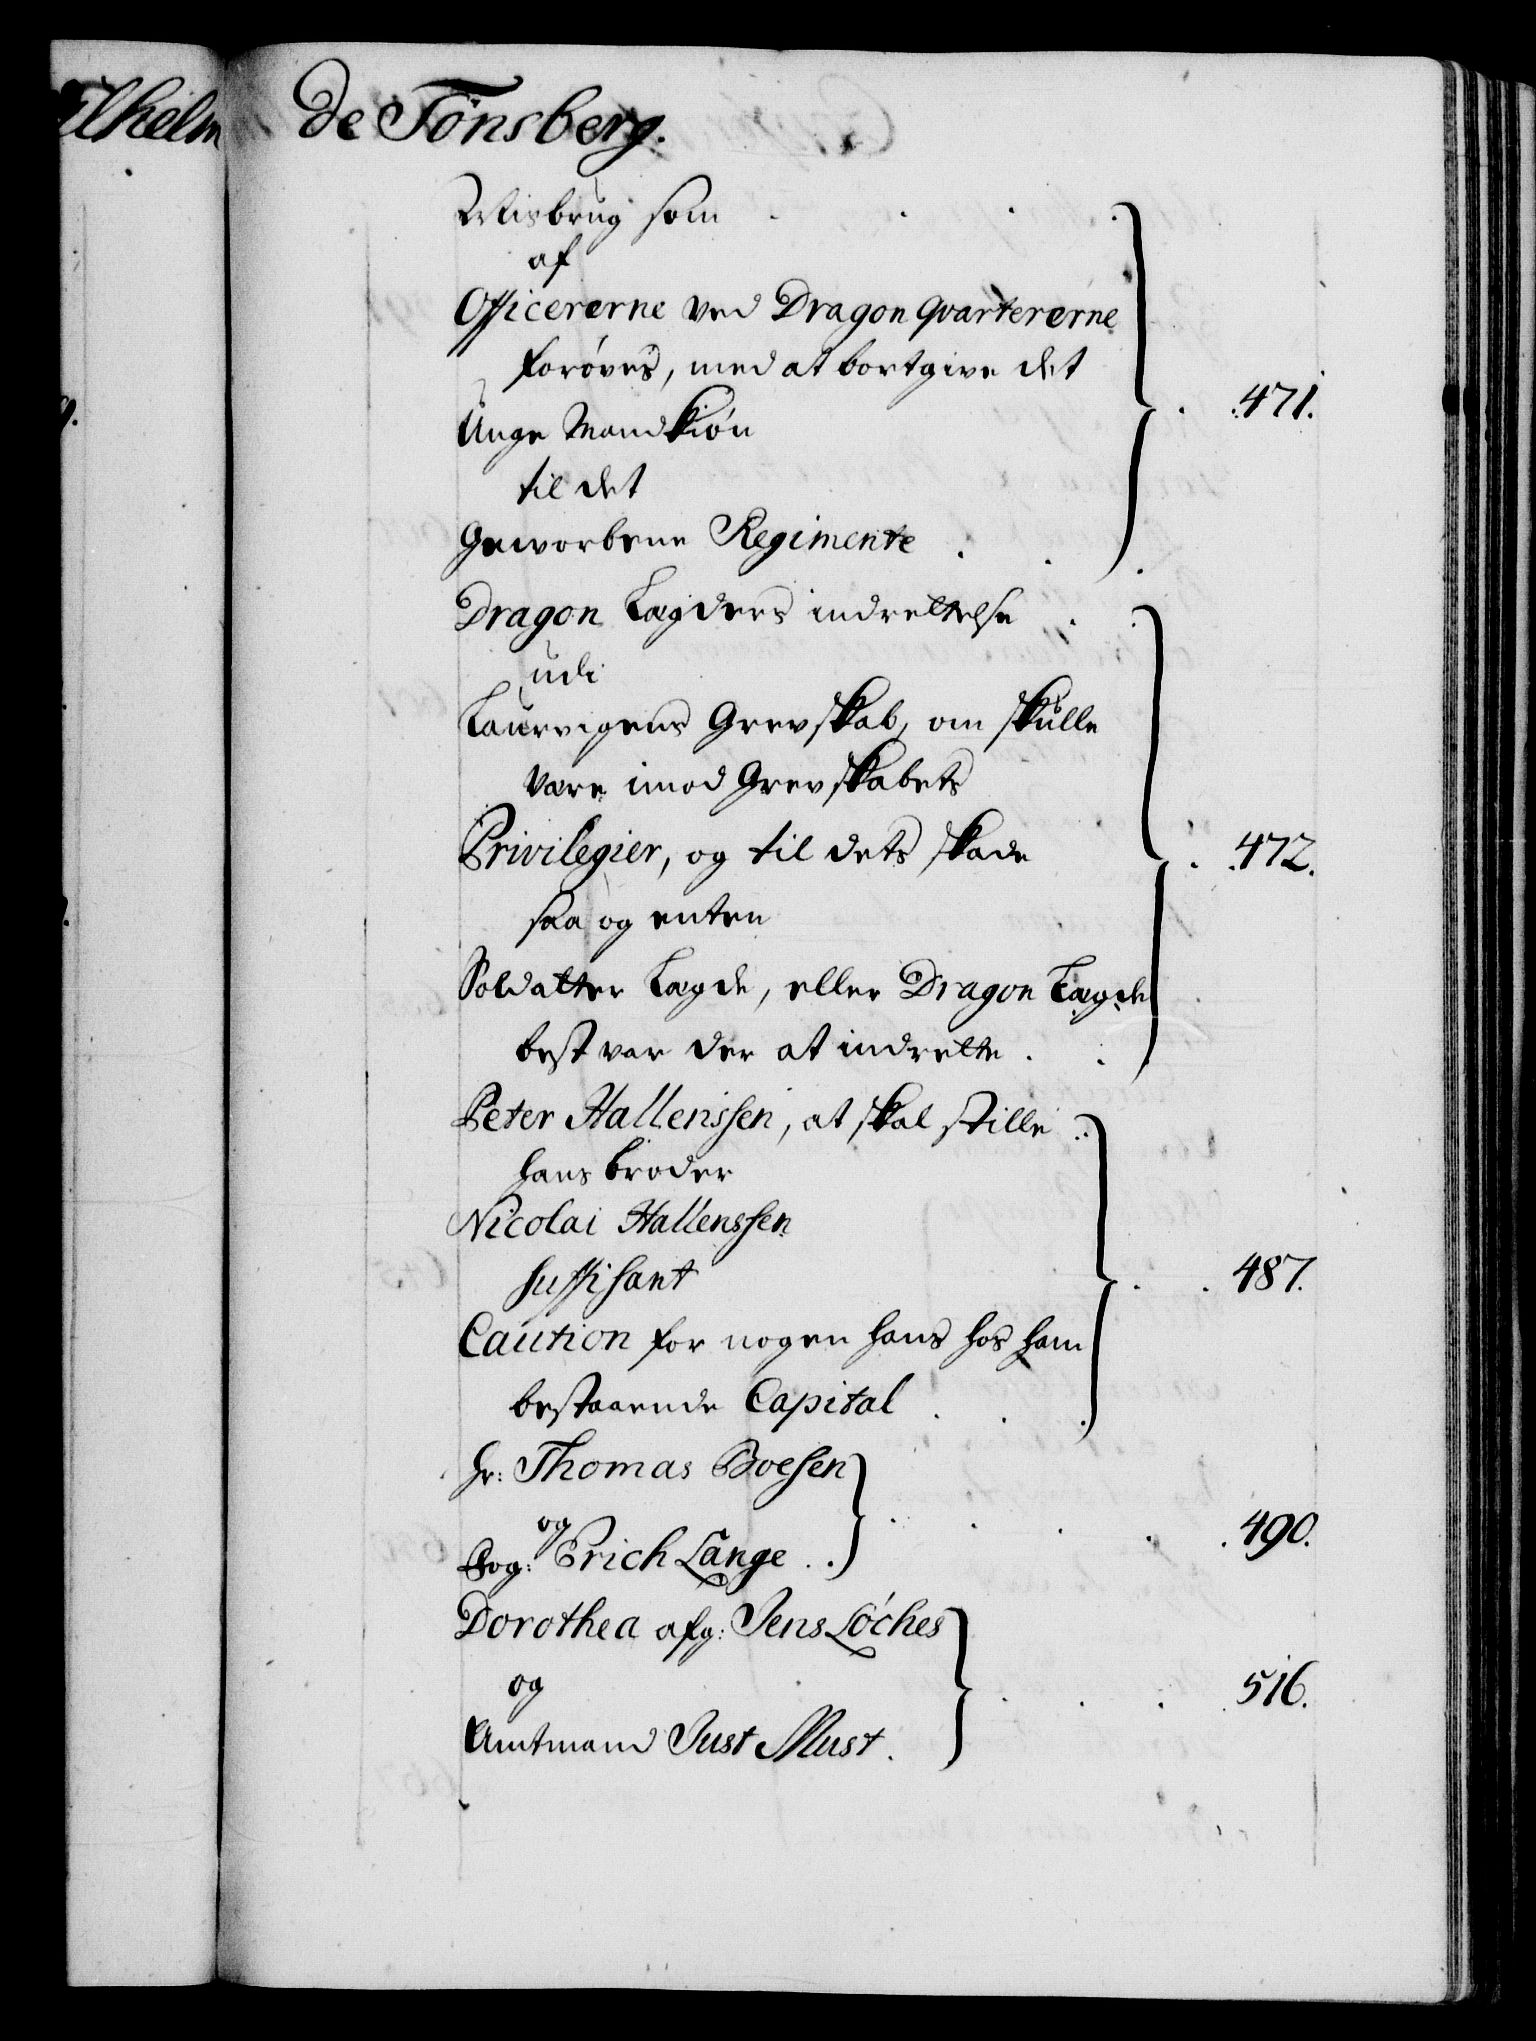 ilhelm
de Tønsberg.
Misbrug som
af
Officererne ved Dragon Qvartererne
forøves, med at bortgive det
Unge Mandkiøn
til det
Geworbene Regimente . . 471.
Dragon Lægders indrettelse
udi
Laurvigens Grevskab, om skulle
være imod Grevskabets
Privilegier, og til dets skade
saa og enten
Soldatter Lægde, eller Dragon Lægde
best var der at indrette . . 472.
Peter Hallenssen, at skal stille
hans broder
Nicolai Hallenssen
suffisant
Caution for nogen hans hos ham
bestaaende Capital . . 487.
Hr: Thomas Boesen
og
Fog: Erich Lange . . 490.
Dorothea afg: Jens Løches
og
Amtmand Just Must . . 516.